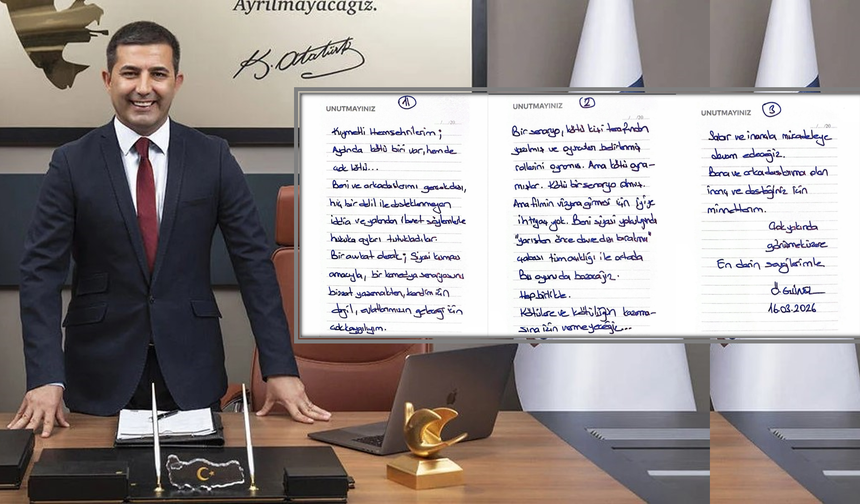 Ayrılmayacağız.
K. Atatürk
UNUTMAYINIZ
1
Kıymetli Hemşehrilerim;
Aydında kötü biri var, hem de
çok kötü...
Beni ve arkadaşlarımı gerçekdışı,
hiç bir delil ile desteklenmeyen
iddia ve yalandan ibaret söylemlerle
hukuka aykırı tutukladılar.
Bir avukat olarak; Siyasi kumpas
amacıyla, bir komedya senaryosunu
bizzat yazmaktan, kendim için
değil, evlatlarımızın geleceği için
çok kaygılıyım.
UNUTMAYINIZ
2
Bir senaryo, kötü kişi tarafından
yazılmış ve oyuncuları belirlenmiş
rollerini oynamış. Ama kötü oyna-
mışlar. Kötü bir senaryo olmuş.
Ana filmin vizyona girmesi için iyice
ihtiyaç yok. Beni siyasi yolculuğunda
"yarıştan önce devre dışı bırakma"
çabası tüm açıklığı ile ortada
Bu oyunu da bozacağız.
Hep birlikte.
Kötülere ve kötülüğün kazanma-
sına izin vermeyeceğiz...
UNUTMAYINIZ
3
Sabır ve inançla mücadeleye
devam edeceğiz.
Bana ve arkadaşlarıma olan
inanç ve desteğiniz için
minnettarım.
Çok yakında
görüşmek üzere
En derin sevgilerimle
Ö. GÜNEL
16.03.2026